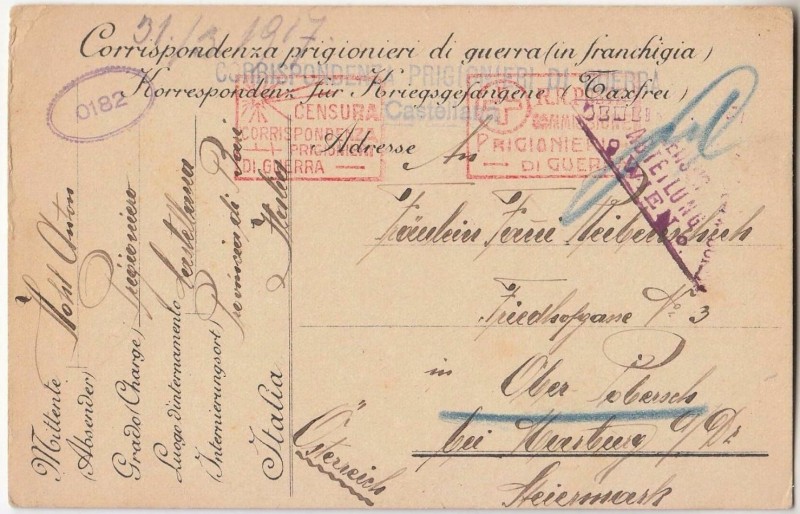 31/3 1917.
Corrispondenza prigionieri di guerra (in franchigia)
CORRISPONDENZA PRIGIONIERI DI GUERRA
Korrespondenz für Kriegsgefangene (Taxfrei)
Castellana
0182
CENSURA
CORRISPONDENZA
PRIGIONIERI
DI GUERRA
COMMISSIONE
PRIGIONIERI
DI GUERRA
ABTEILUNG
WIEN
Adresse An
Fräulein
Friedhofgasse No 3
in Ober
bei Marburg a/Dr
Steiermark
Österreich
Mittente
(Absender) Anton
Grado (Charge) Prigioniero
Luogo d'internamento Castellana
(Internierungsort) provincia di Bari
Italia Italia